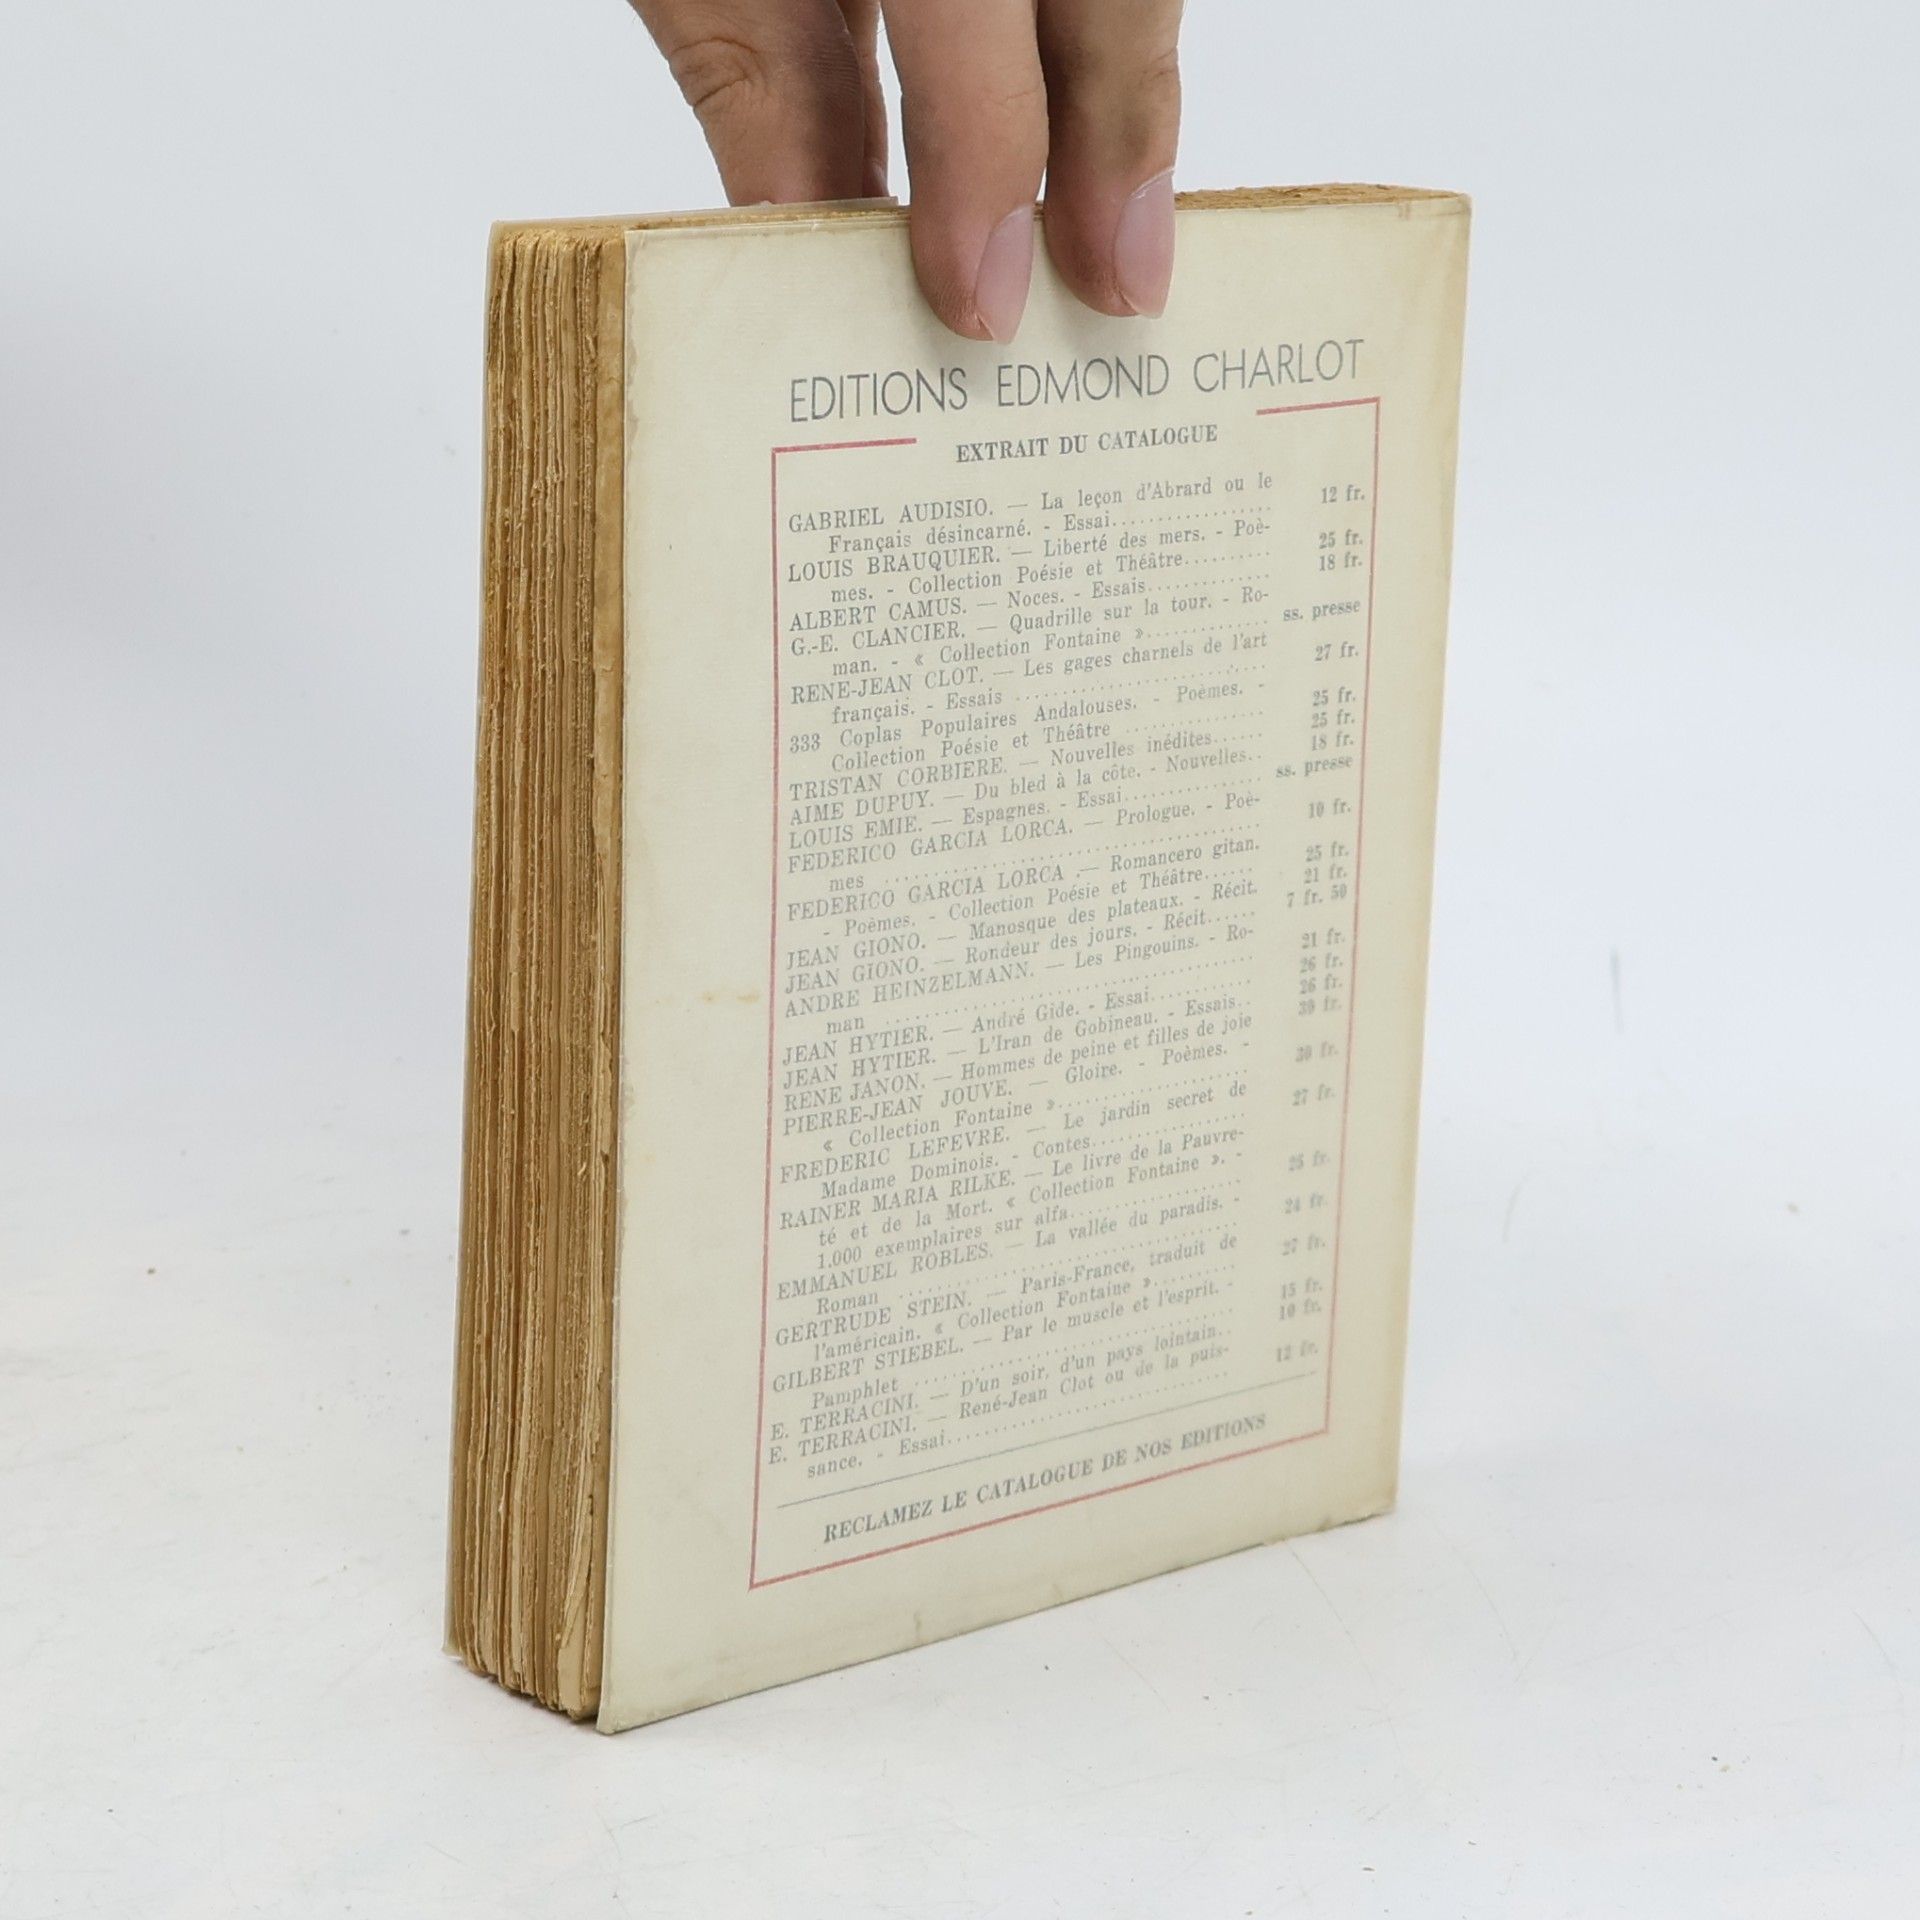 EDITIONS EDMOND CHARLOT
EXTRAIT DU CATALOGUE
GABRIEL AUDISIO. — La leçon d'Abrard ou le
Français désincarné. - Essai.................. 12 fr.
LOUIS BRAUQUIER. — Liberté des mers. - Poè-
mes. - Collection Poésie et Théâtre.......... 25 fr.
ALBERT CAMUS. — Noces. - Essais.............. 18 fr.
G.-E. CLANCIER. — Quadrille sur la tour. - Ro-
man. - « Collection Fontaine ».............. ss. presse
RENE-JEAN CLOT. — Les gages charnels de l'art
français. - Essais ........................ 27 fr.
333 Coplas Populaires Andalouses. - Poèmes. -
Collection Poésie et Théâtre ............... 25 fr.
TRISTAN CORBIERE. — Nouvelles inédites...... 25 fr.
AIME DUPUY. — Du bled à la côte. - Nouvelles.. 18 fr.
LOUIS EMIE. — Espagnes. - Essai.............. ss. presse
FEDERICO GARCIA LORCA. — Prologue. - Poè-
mes ........................................ 10 fr.
FEDERICO GARCIA LORCA .— Romancero gitan.
- Poèmes. - Collection Poésie et Théâtre...... 25 fr.
JEAN GIONO. — Manosque des plateaux. - Récit. 21 fr.
JEAN GIONO. — Rondeur des jours. - Récit...... 7 fr. 50
ANDRE HEINZELMANN. — Les Pingouins. - Ro-
man ........................................ 21 fr.
JEAN HYTIER. — André Gide. - Essai............ 26 fr.
JEAN HYTIER. — L'Iran de Gobineau. - Essais.. 26 fr.
RENE JANON. — Hommes de peine et filles de joie 30 fr.
PIERRE-JEAN JOUVE. — Gloire. - Poèmes. -
« Collection Fontaine »..................... 30 fr.
FREDERIC LEFEVRE. — Le jardin secret de
Madame Dominois. - Contes................. 27 fr.
RAINER MARIA RILKE. — Le livre de la Pauvre-
té et de la Mort. « Collection Fontaine ». -
1.000 exemplaires sur alfa................... 25 fr.
EMMANUEL ROBLES. — La vallée du paradis. -
Roman ..................................... 24 fr.
GERTRUDE STEIN. — Paris-France, traduit de
l'américain. « Collection Fontaine ».......... 27 fr.
GILBERT STIEBEL. — Par le muscle et l'esprit. -
Pamphlet ................................... 15 fr.
E. TERRACINI. — D'un soir, d'un pays lointain.. 10 fr.
E. TERRACINI. — René-Jean Clot ou de la puis-
sance. - Essai............................... 12 fr.
RECLAMEZ LE CATALOGUE DE NOS EDITIONS